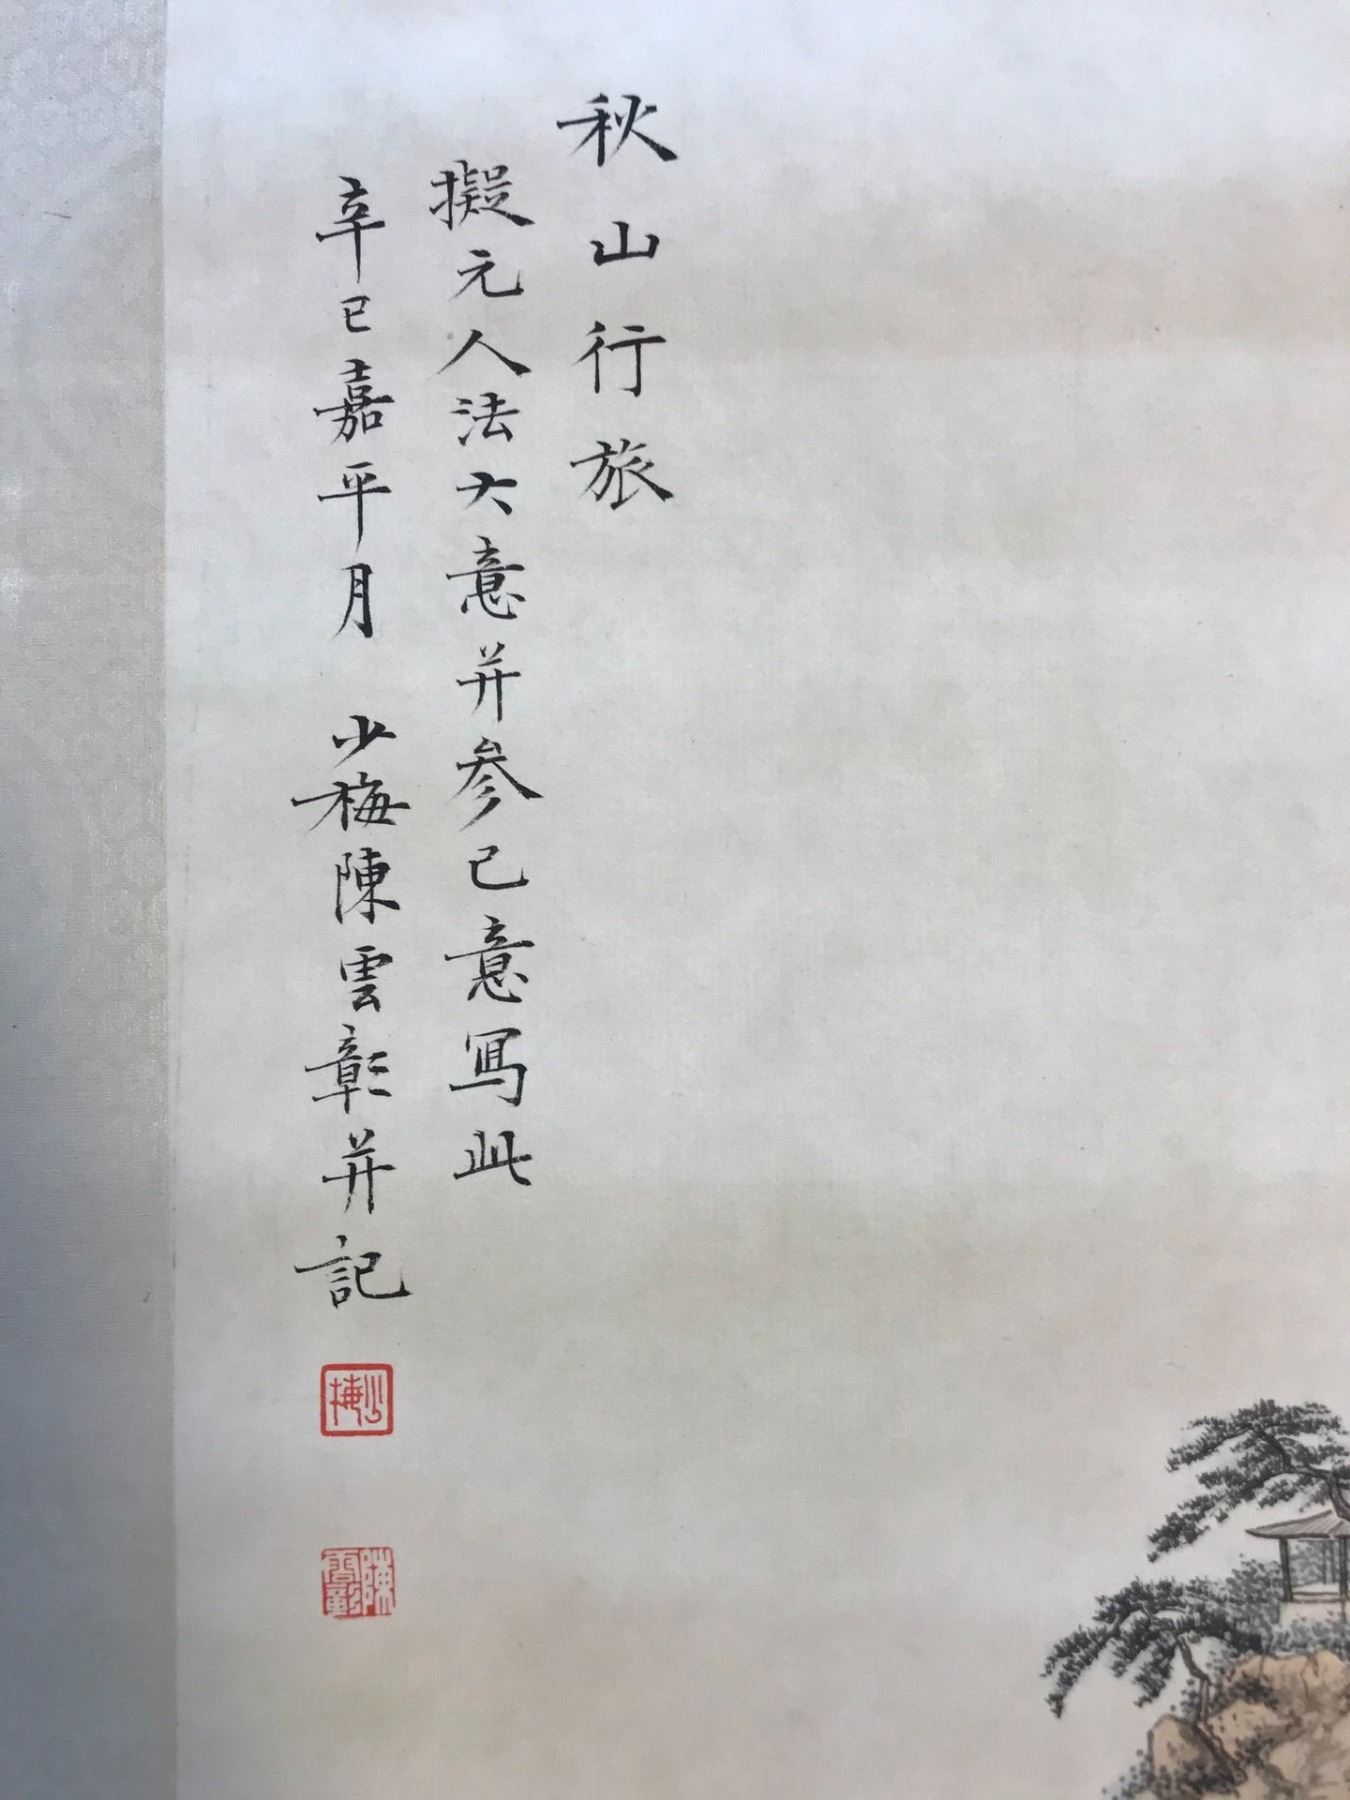 秋山行旅
擬元人法大意并参己意寫此
辛巳嘉平月 少梅陳雲彰并記
少梅
陳雲彰